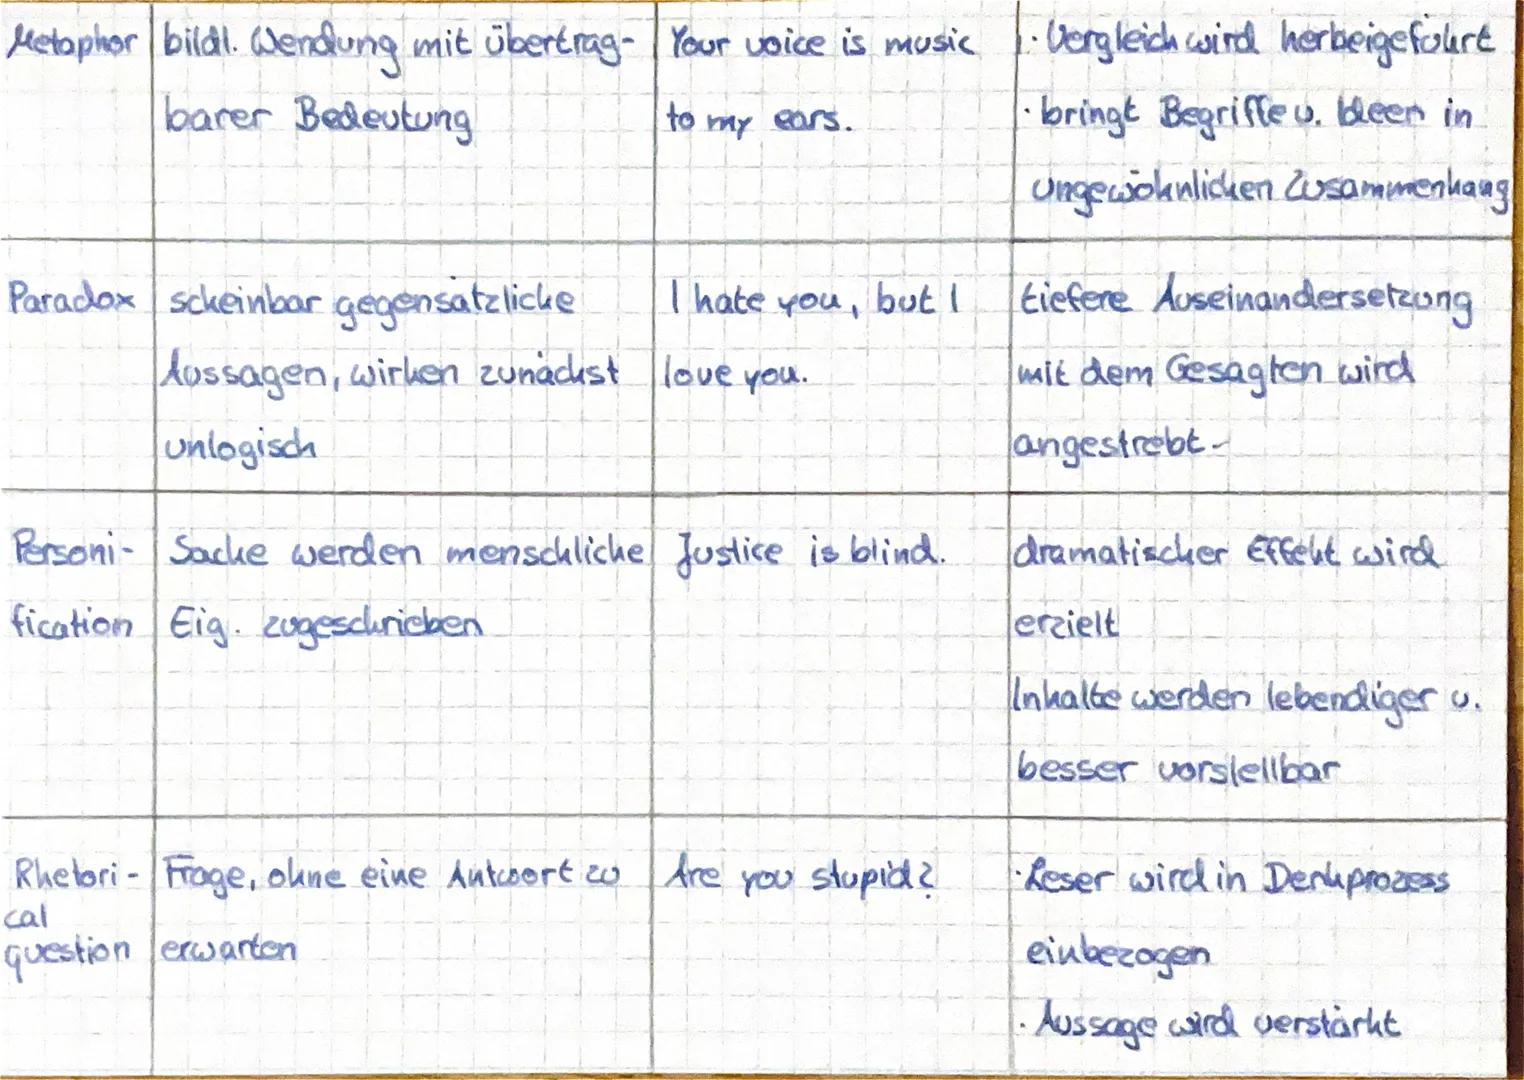 Metaphor
bildl. Wendung mit übertrag-
barer Bedeutung
Your voice is music
to my ears.
· Vergleich wird herbeigeführt
· bringt Begriffe u. Ideen in
ungewöhnlichen Zusammenhang
Paradox
scheinbar gegensätzliche
Aussagen, wirken zunächst
unlogisch
I hate you, but I
love you.
tiefere Auseinandersetzung
mit dem Gesagten wird
angestrebt
Personi-
fication
Sache werden menschliche
Eig. zugeschrieben
Justice is blind.
dramatischer Effekt wird
erzielt
Inhalte werden lebendiger u.
besser vorstellbar
Rhetori-
cal
question
Frage, ohne eine Antwort zu
erwarten
Are you stupid?
· Leser wird in Denkprozess
einbezogen
· Aussage wird verstärkt